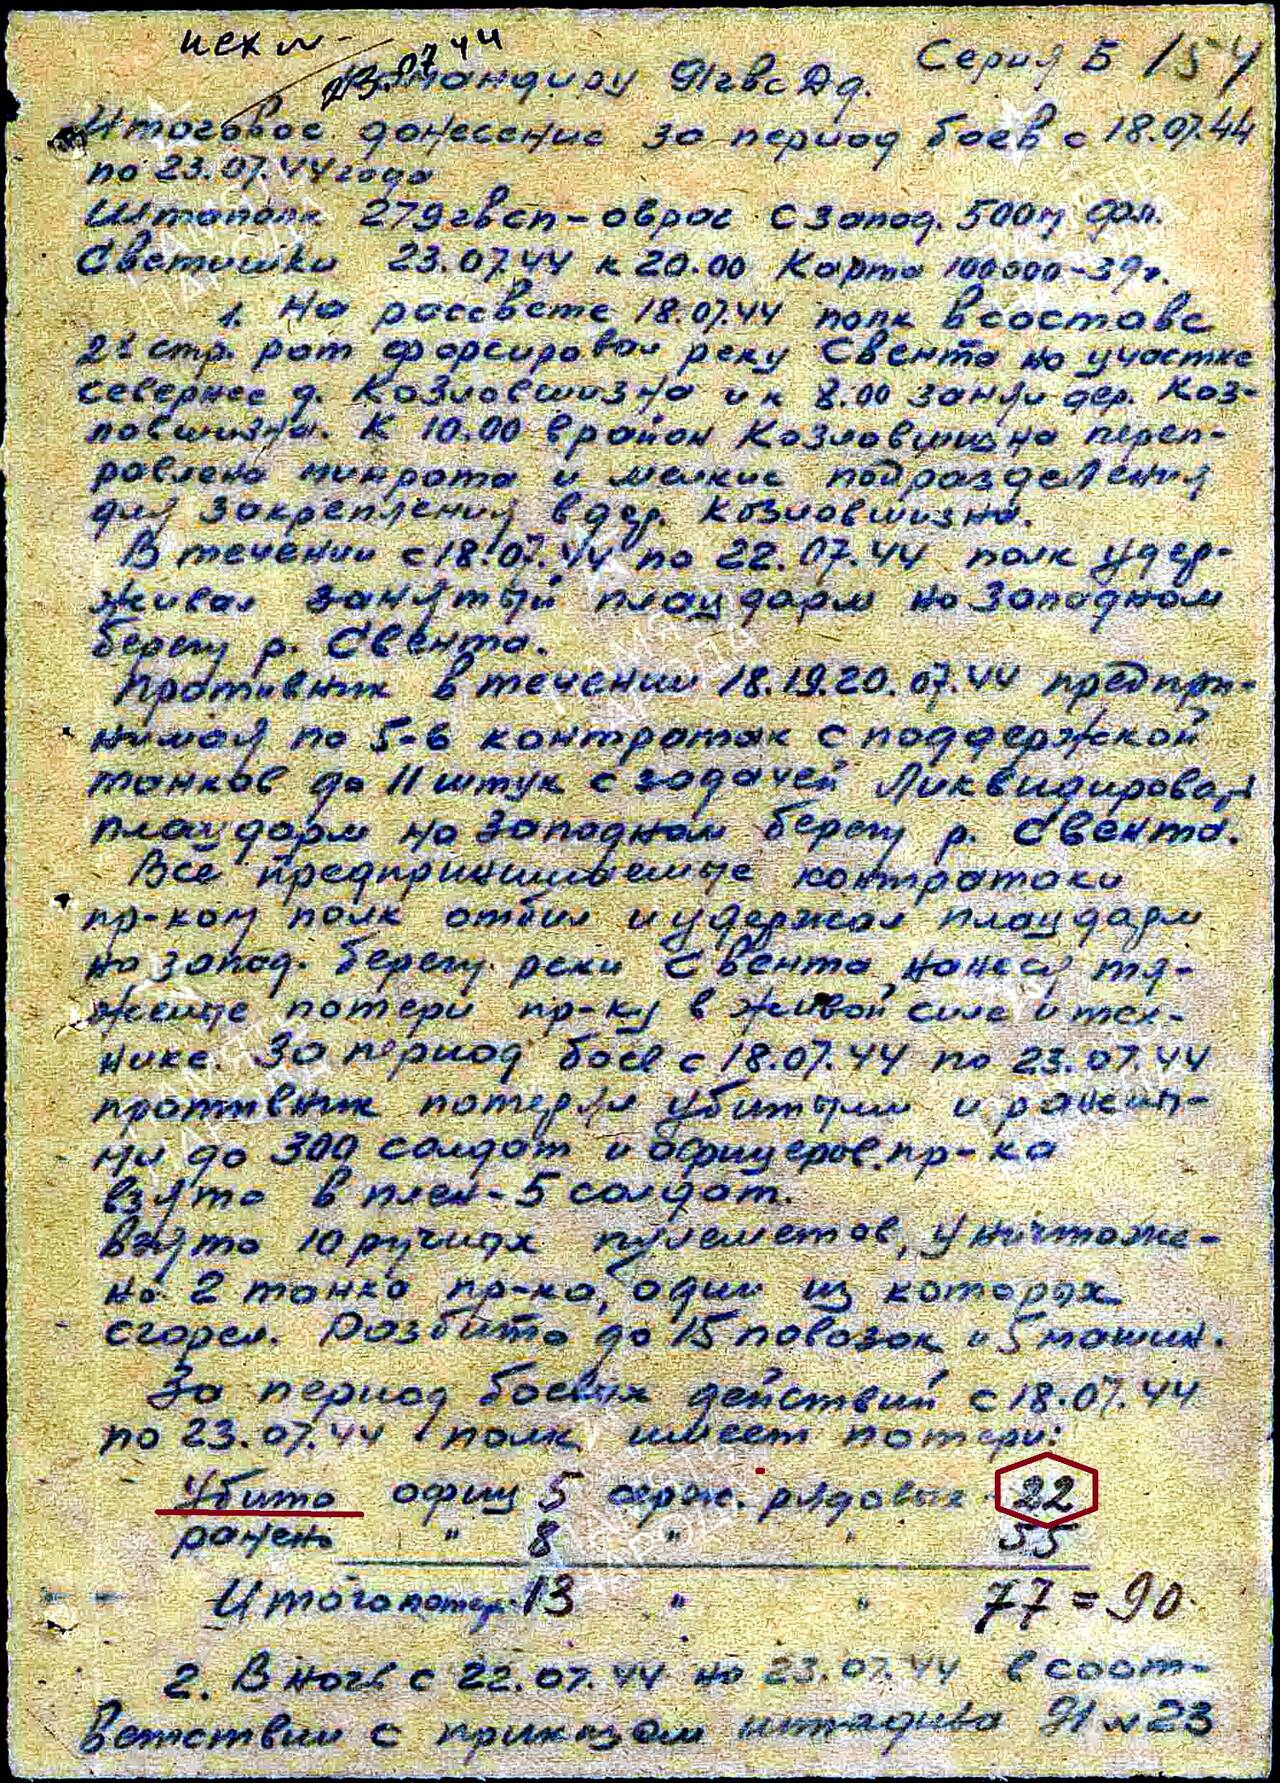 исх №-
23.07.44
Серия Б 154
Командиру 91 гвсДд.
Итоговое донесение за период боев с 18.07.44
по 23.07.44 года
Штаполк 279гвсп-овраг с запад. 500м фол.
Светишки 23.07.44 к 20.00 Карта 100000-39г.
1. На рассвете 18.07.44 полк в составе
2х стр. рот форсировал реку Свента на участке
севернее д. Козловшизна и к 8.00 занял дер. Коз-
ловшизна. К 10.00 в район Козловшизна переп-
равлена минрота и мелкие подразделения
для закрепления в дер. Козловшизна.
В течении с 18.07.44 по 22.07.44 полк удер-
живал занятый плацдарм на западном
берегу р. Свента.
Противник в течении 18.19.20.07.44 предпри-
нимая по 5-6 контратак с поддержкой
танков до 11 штук с задачей Ликвидировать
плацдарм на западном берегу р. Свента.
Все предпринимаемые контратаки
пр-ком полк отбил и удержал плацдарм
на запад. берегу реки Свента, нанеся тя-
желые потери пр-ку в живой силе и тех-
нике. За период боев с 18.07.44 по 23.07.44
противник потерял убитыми и ранен-
ми до 300 солдат и офицеров пр-ка
взято в плен-5 солдат.
взято 10 ручных пулеметов, уничтоже-
но 2 танка пр-ка, один из которых
сгорел. Разбито до 15 повозок и 5 машин.
За период боевых действий с 18.07.44
по 23.07.44 полк имеет потери:
Убито офиц 5 серж. рядовые 22
ранено " 8 " " 55
Итого потер. 13 " " 77 = 90.
2. В ночь с 22.07.44 на 23.07.44 в соот-
ветствии с приказом штадива 91 № 23